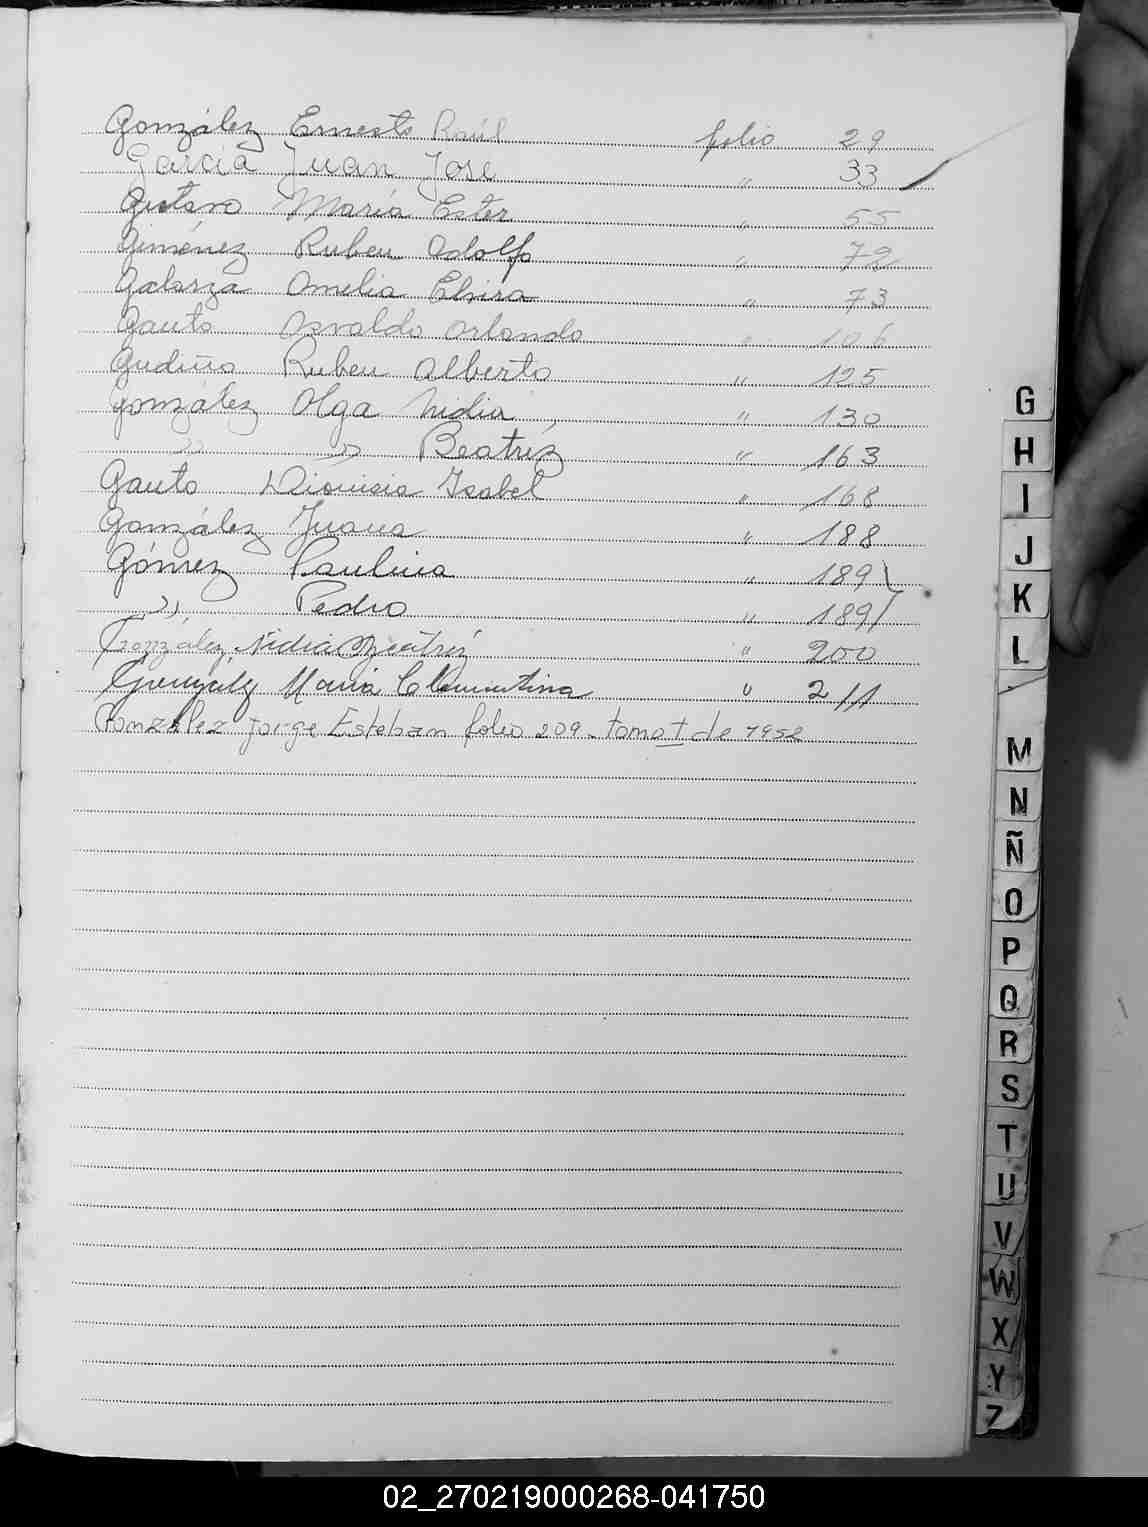 González Ernesto Raúl folio 29
García Juan José " 33
María Ester " 55
Giménez Ruben Adolfo " 72
Galarza Amelia Elvira " 73
Gauto Osvaldo Orlando " 106
Gudiño Ruben Alberto " 125
González Olga Nidia " 130
" " Beatríz " 163
Gauto Dionisia Isabel " 168
González Juana " 188
Gómez Paulina " 189
" Pedro " 189
González Nidia Beatríz " 200
González María Clementina " 211
González Jorge Esteban folio 209 - tomo I de 1952
G
H
I
J
K
L
M
N
Ñ
O
P
Q
R
S
T
U
V
W
X
Y
Z
02_270219000268-041750